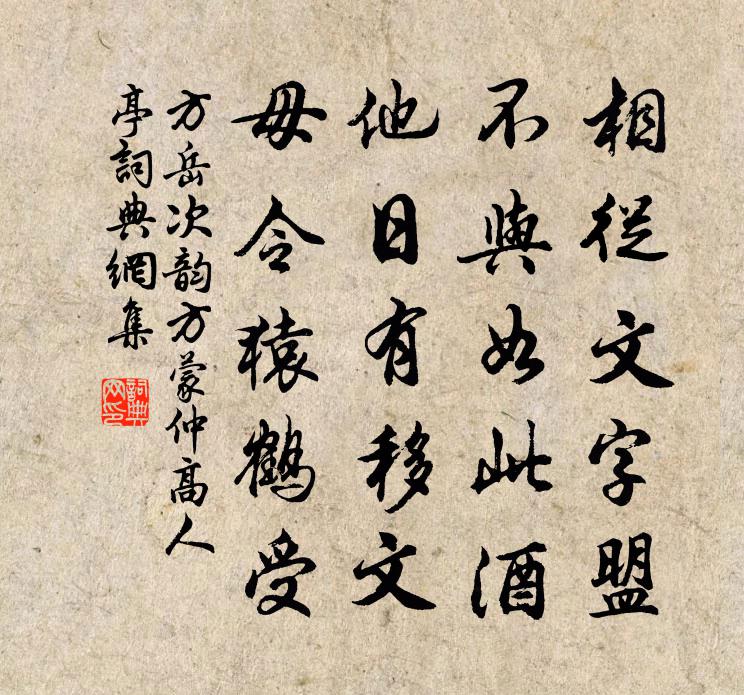 相從文字盟
不與如此酒
他日有移文
毋令猿鶴受
方岳次韵方蒙仲高人
亭詞典網集
詞典
网印